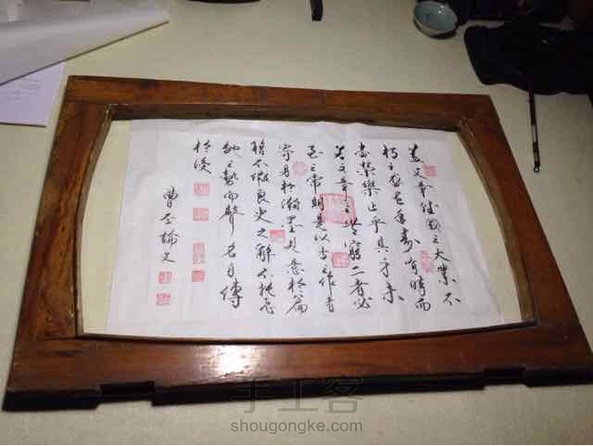 蓋文章經國之大業不
朽之盛事年壽有時而
盡榮樂止乎其身未
若文章之無窮二者必
至之常期是以古之作者
寄身於瀚墨見意於篇
籍不假良史之辭不托飛
馳之勢而聲名自傳
於後
曹丕論文
手工客
shougongke.com